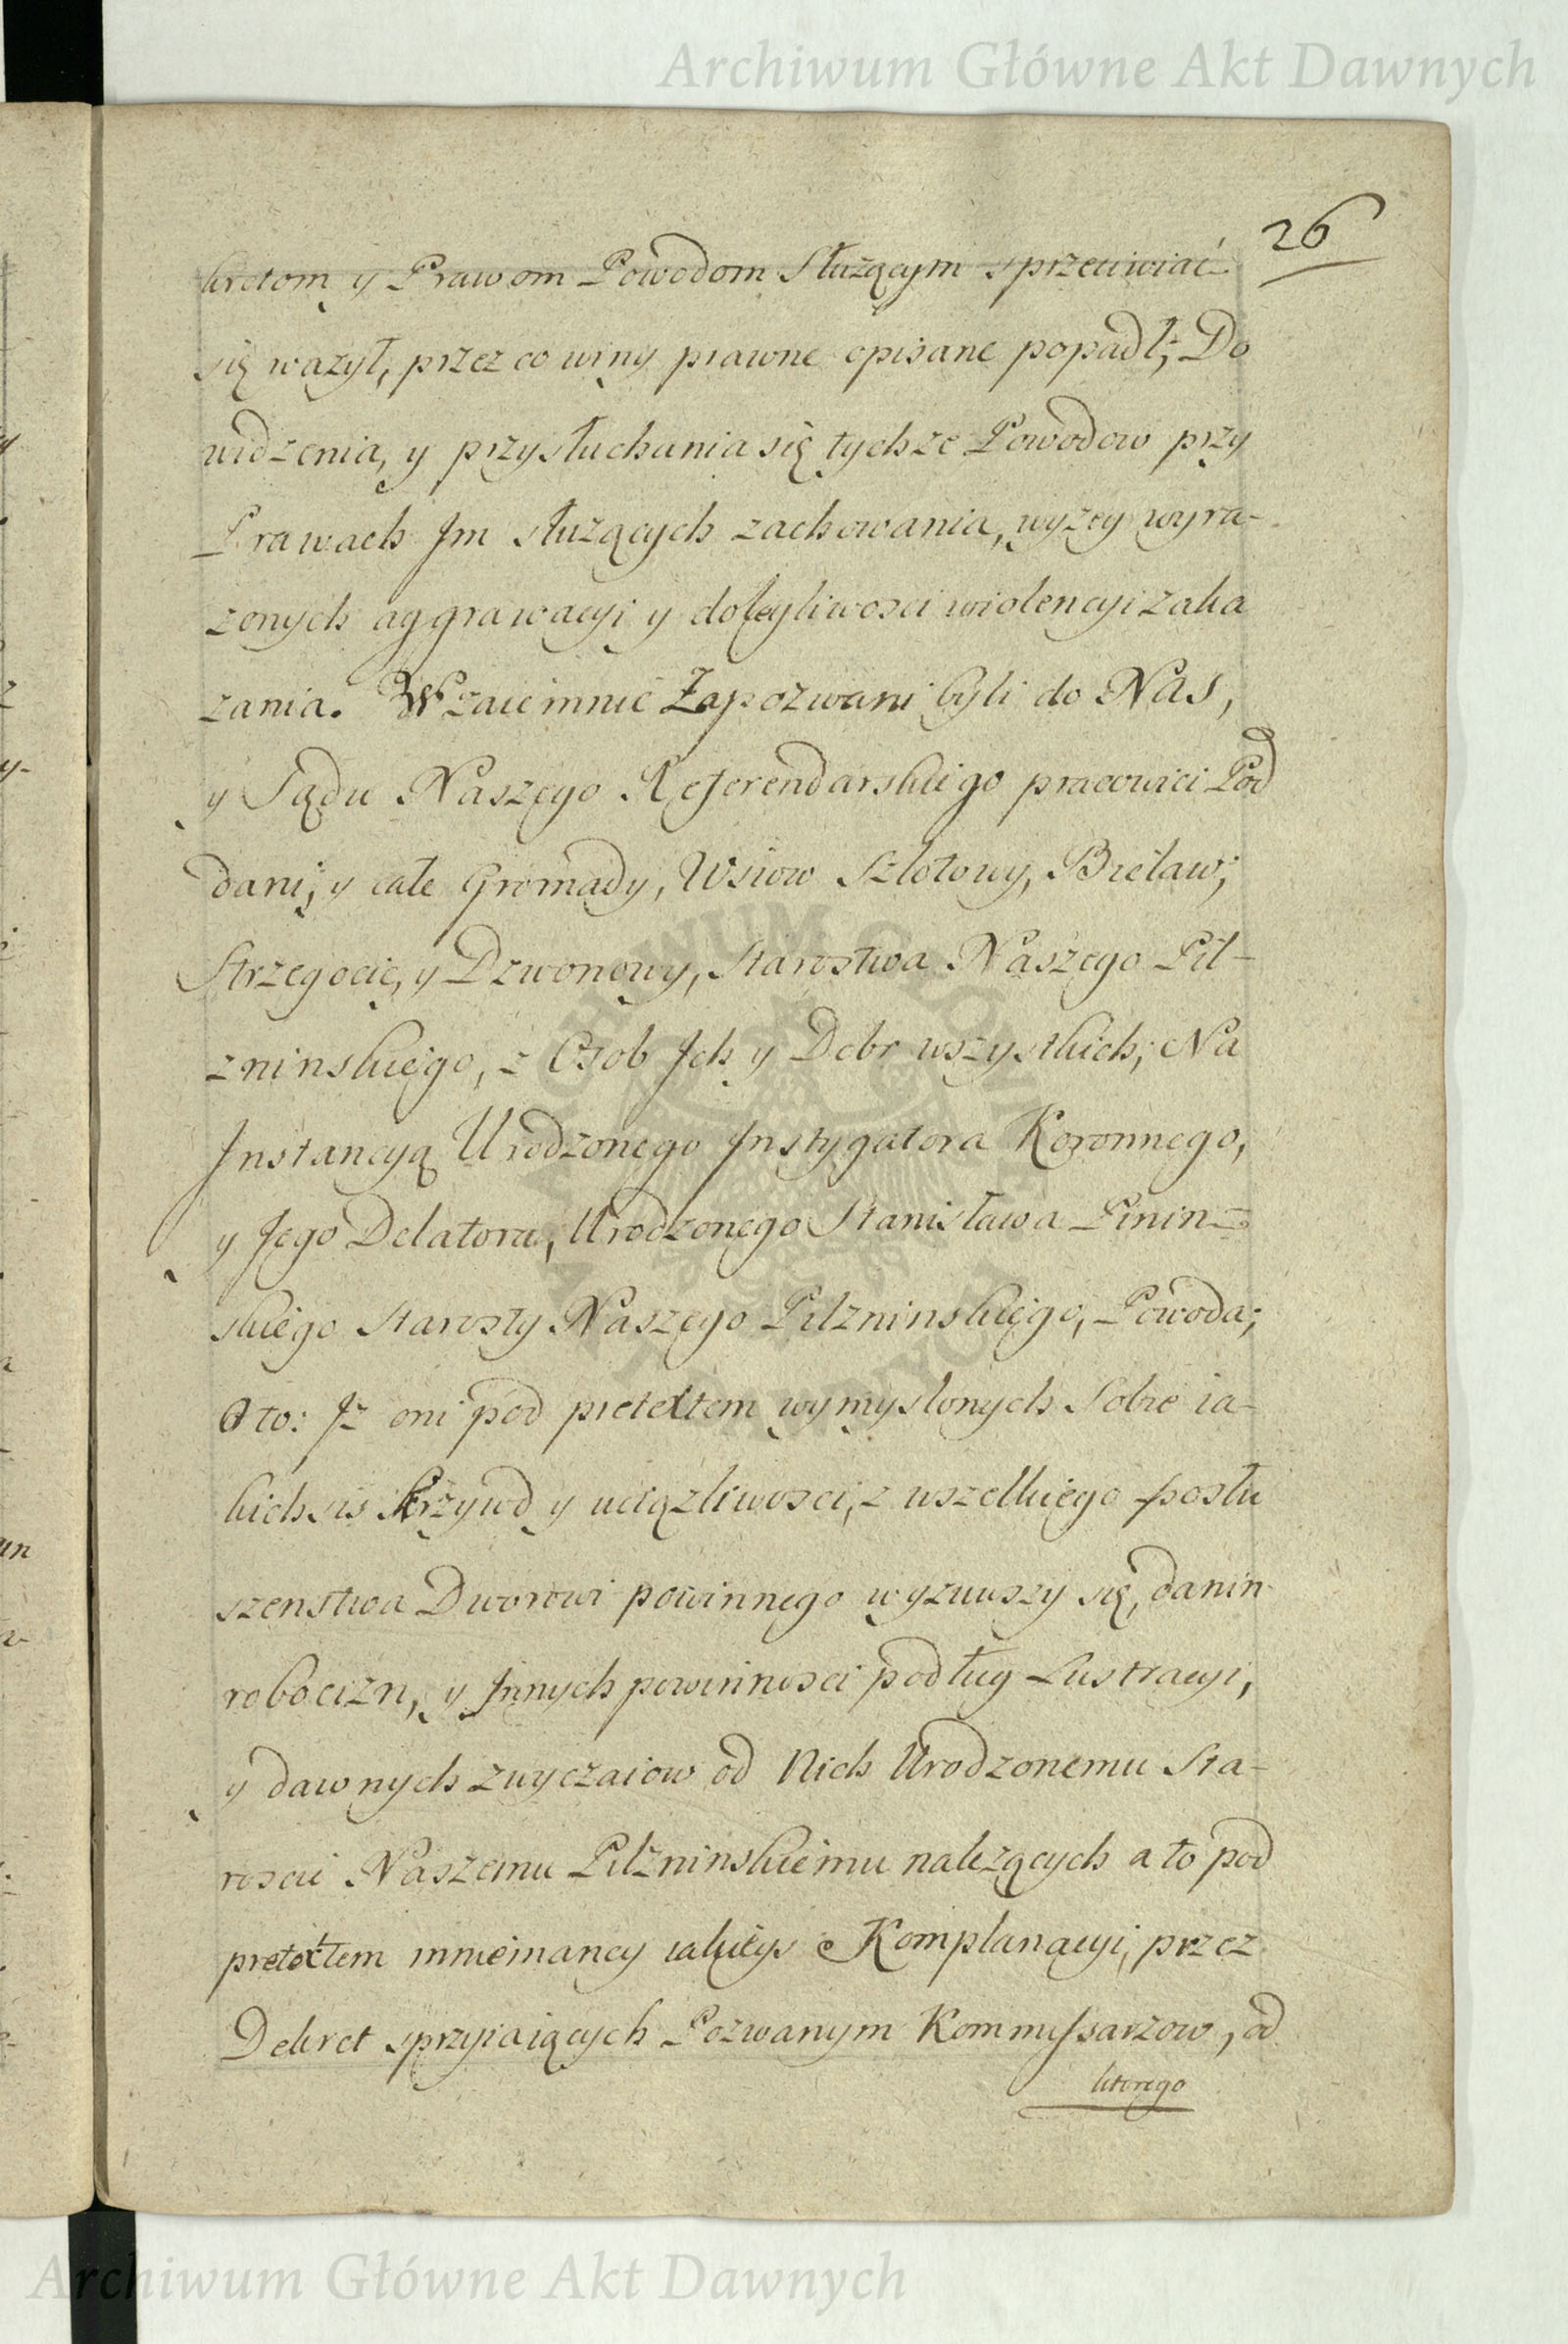 Archiwum Główne Akt Dawnych
26
kretom y Prawom Powodom Służącym sprzeciwiać
się ważył, przez co winy prawne opisane popadł; Do
widzenia, y przysłuchania się tychże Powodow przy
Prawach Jm służących zachowania, wyżey wyra-
żonych aggrawacyi y dolegliwosci wiolencyi zaka
zania. Wzaiemnie Zapozwani byli do Nas,
y Sądu Naszego Referendarskiego pracowici Pod
dani, y całe Gromady, Wsiow Szlotowy, Brelaw;
Strzegocic, y Dzwonowy, Starostwa Naszego Pil-
zninskiego, z Osob Jch y Dobr wszystkich; Na
Jnstancyą Urodzonego Jnstygatora Koronnego,
y Jego Delatora, Urodzonego Stanisława Pinin-
skiego Starosty Naszego Pilzninskiego, Powoda;
O to: Jż oni pod pretextem wymyslonych Sobie ia-
kichsis krzywd y uciązliwosci, z wszelkiego posłu
szenstwa Dworowi powinnego wyzuwszy się, danin
robocizn, y Jnnych powinnosci podług Lustracyi,
y dawnych zwyczaiow od Nich Urodzonemu Sta-
roscie Naszemu Pilzninskiemu należących a to pod
pretextem mniemaney iakieys Komplanacyi, przez
Dekret sprzyiaiących Pozwanym Kommissarzow, od
ktorego
Archiwum Główne Akt Dawnych